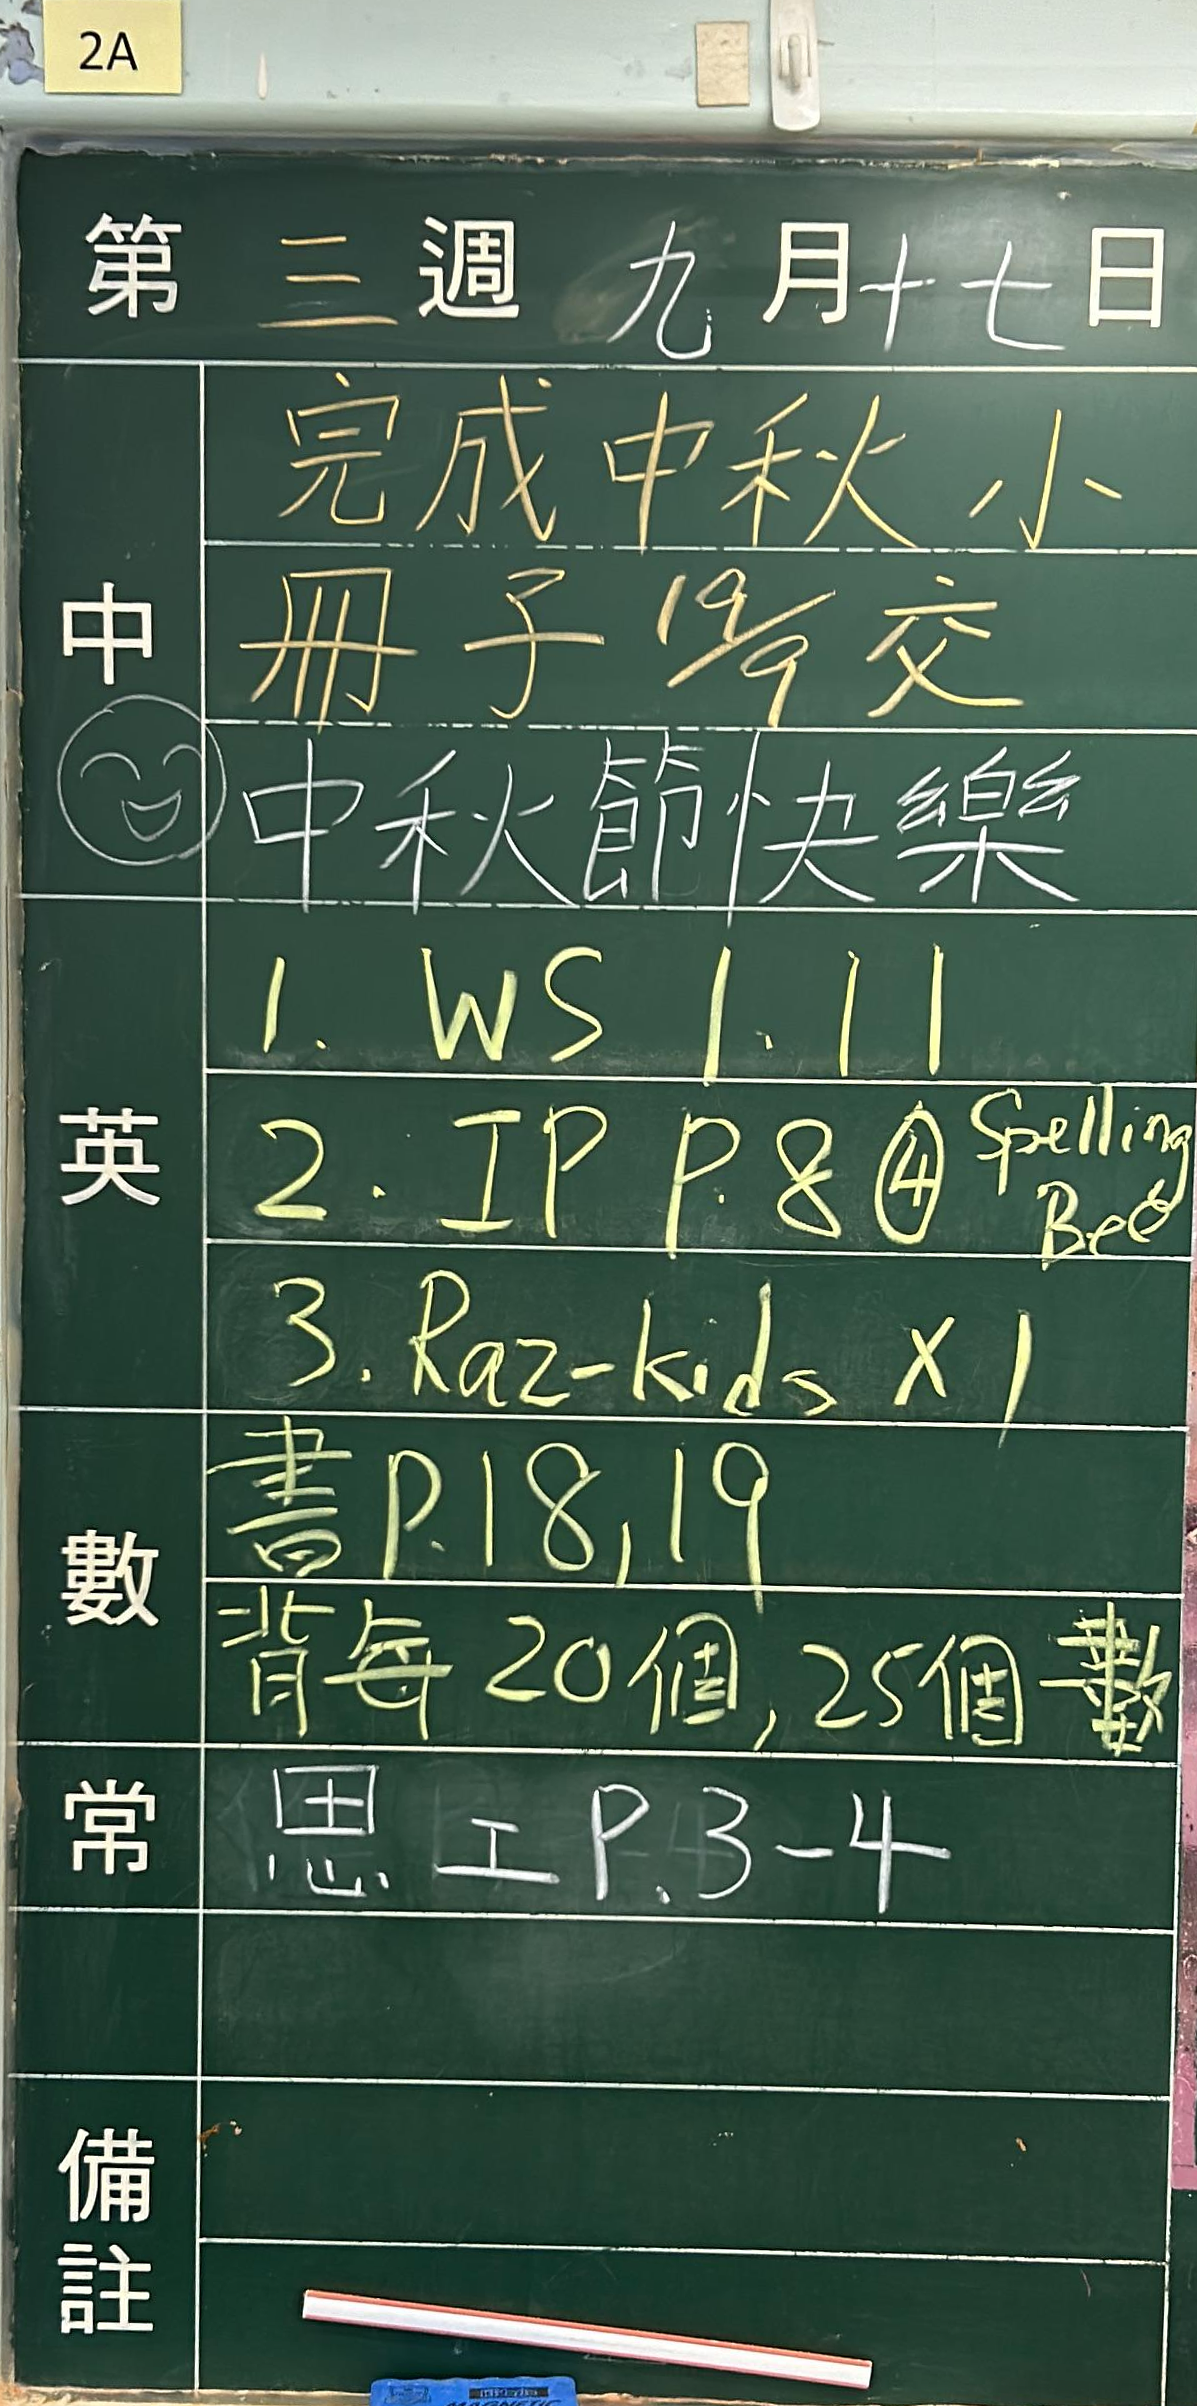 2A
第三週九月十七日
中
完成中秋小
冊子19/9交
中秋節快樂
英
1. WS 1.11
2. IP P.8 ④ Spelling Bee
3. Raz-kids x 1
數
書P.18,19
背每20個,25個一數
常
思工P.3-4
備註
MAGNETIC